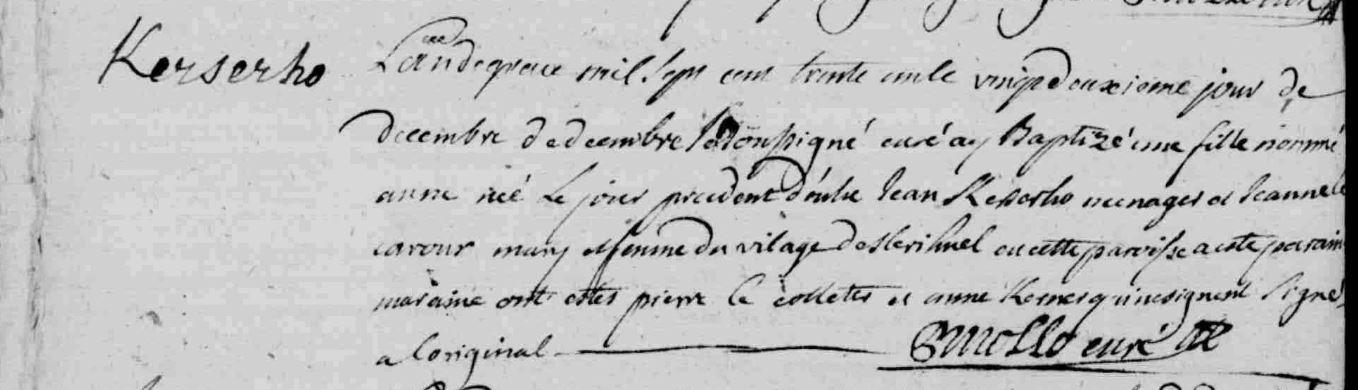 Kerserho
L'an de grace mil sept cent trente un le vingt deuxieme jour de
decembre de decembre soussigné curé ay Baptizé une fille nommé
anne néé le jour precedent d'entre Jean Kerserho menager et Jeanne le
carour mary et femme du vilage de en cette paroisse a esté parain
maraine ont estes pierre le colleter et anne qui ne signent Signé
a l'original curé